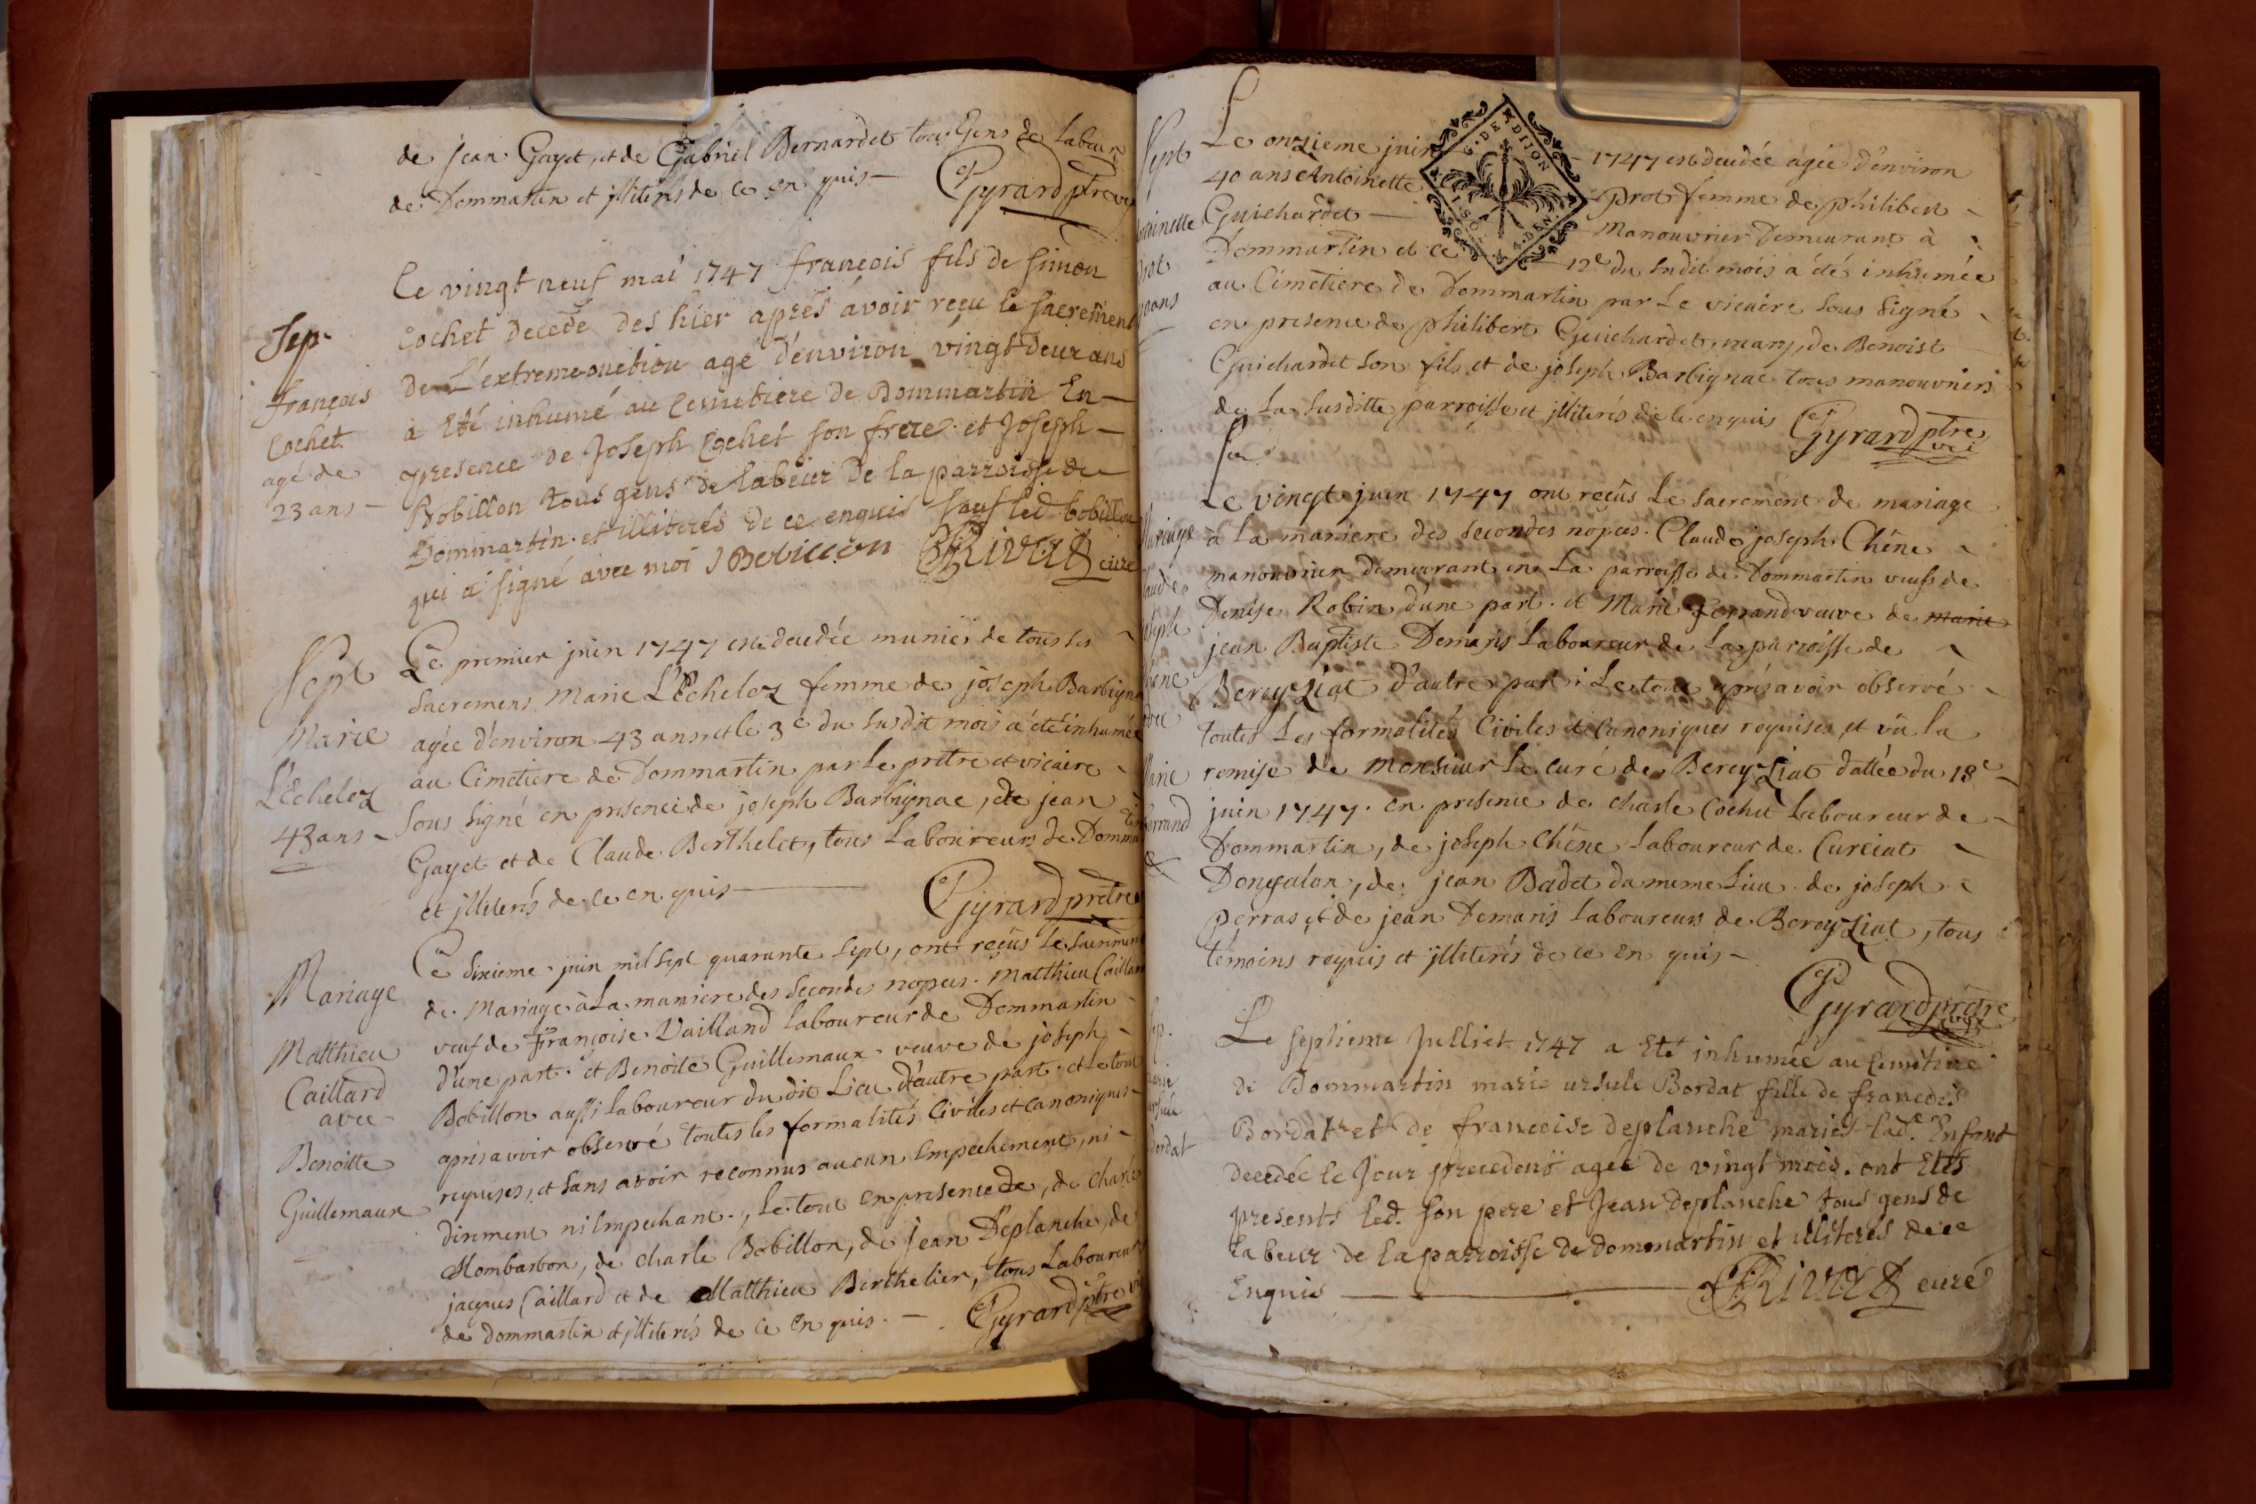 de jean Gayet, et de Gabriel Bernardet tous Gens de labeur
de Dommartin et jlliterés de ce en quis —
Gyrard ptre vic
Sep.
françois
Cochet
agé de
23 ans —
Le vingt neuf mai 1747 françois fils de simon
Cochet decedé des hier apres avoir reçu le sacrement
De L'extreme onction agé d'environ vingt deux ans
a Eté inhumé au cemetiere de Dommartin En —
presence de Joseph Cochet son frere et Joseph —
Bobillon tous gens de labeur De la parroisse de
Dommartin et illiterés de ce enquis sauf led bobillon
qui a signé avec moi J Bobillon
curé
Sept
Marie
L'Echelez
43 ans —
Le premier juin 1747 est decedée munie de tous les
sacremens Marie L'Echelez femme de joseph Barbignac
agée d'environ 43 ans et le 3e du susdit mois a été inhumée
au Cimetiere de Dommartin par le prêtre et vicaire
sous signé en presence de joseph Barbignac, de jean
Gayet et de Claude Berthelet, tous Laboureurs de Dommartin
et jlliterés de ce en quis —
Gyrard prêtre
Mariage
Matthieu
Caillard
avec
Benoitte
Guillemaux
Le sixieme juin mil sept quarante sept, ont reçûs le sacrement
de Mariage à La maniere des secondes nopces Matthieu Caillard
veuf de Françoise Vailland laboureur de Dommartin
d'une part et Benoite Guillemaux veuve de joseph —
Bobillon aussi laboureur du dit Lieu d'autre part et le tout
apris avoir observé toutes les formalités Civiles et Canoniques —
requises, et sans avoir reconnus aucun Empechement, ni —
diriment ni Empechant, Le tout en presence de, de Charle
Mombarbon, de Charle Bobillon, de jean Deplanche, de
jacques Caillard et de Matthieu Berthelier, tous Laboureurs
de Dommartin et jlliterés de ce en quis. —
Gyrard ptre vic
Sept
Antoinette
Prot
40 ans
Le onzieme juin 1747 est decedée agée d'environ
40 ans Antoinette Prot femme de philibert
Guichardet — Manouvrier Demeurant à
Dommartin et ce 12e du sudit mois a été inhumée
au Cimetiere de Dommartin par Le vicaire sous signé
en presence de philibert Guichardet, mary, de Benoist
Guichardet son fils et de joseph Barbignac tous manouvriers
de La susditte parroisse et jlliterés de ce enquis
Gyrard ptre
vic
G. DE DIJON
Mariage
Claude
joseph
Chêne
avec
Marie
Ferrand
Le vingt juin 1747 ont reçûs Le sacrement de mariage
à La maniere des secondes nopces. Claude joseph Chêne
manouvrier Demeurant en La parroisse de Dommartin veuf de
Denise Robin d'une part et Marie Ferrand veuve de marie
jean Baptiste Demaris Laboureur de La parroisse de
Bereyziat d'autre part. Le tout apris avoir observé
toutes Les formalités Civiles et Canoniques requises et vû la
remise de Monsieur le curé de Bereyziat dattée du 18e
juin 1747. en presence de charle Cochet Laboureur de —
Dommartin, de joseph Chêne Laboureur de Curciat
Dongalon, de jean Badet du meme Lieu de joseph
perras et de jean Demaris laboureurs de Bereyziat, tous
temoins requis et jlliterés de ce en quis —
Gyrard prêtre
vic
Sep.
marie
ursule
Bordat
Le septieme Julliet 1747 a Eté inhumée au cemetiere
de Dommartin marie ursule Bordat fille de francois
Bordat et de francoise deplanche mariés lad. Enfant
decedée le jour precedent agée de vingt mois. ont Etés
presents led. son pere et Jean deplanche tous gens de
labeur de la parroisse de dommartin et illiterés de ce
Enquis —
curé